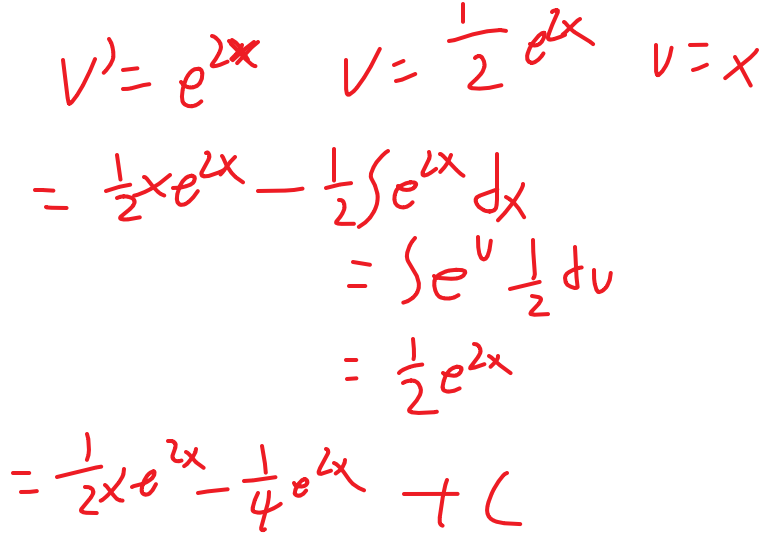 V' = e^{2x} V = \frac{1}{2} e^{2x} u = x
= \frac{1}{2} x e^{2x} - \frac{1}{2} \int e^{2x} dx
= \int e^u \frac{1}{2} du
= \frac{1}{2} e^{2x}
= \frac{1}{2} x e^{2x} - \frac{1}{4} e^{2x} + C